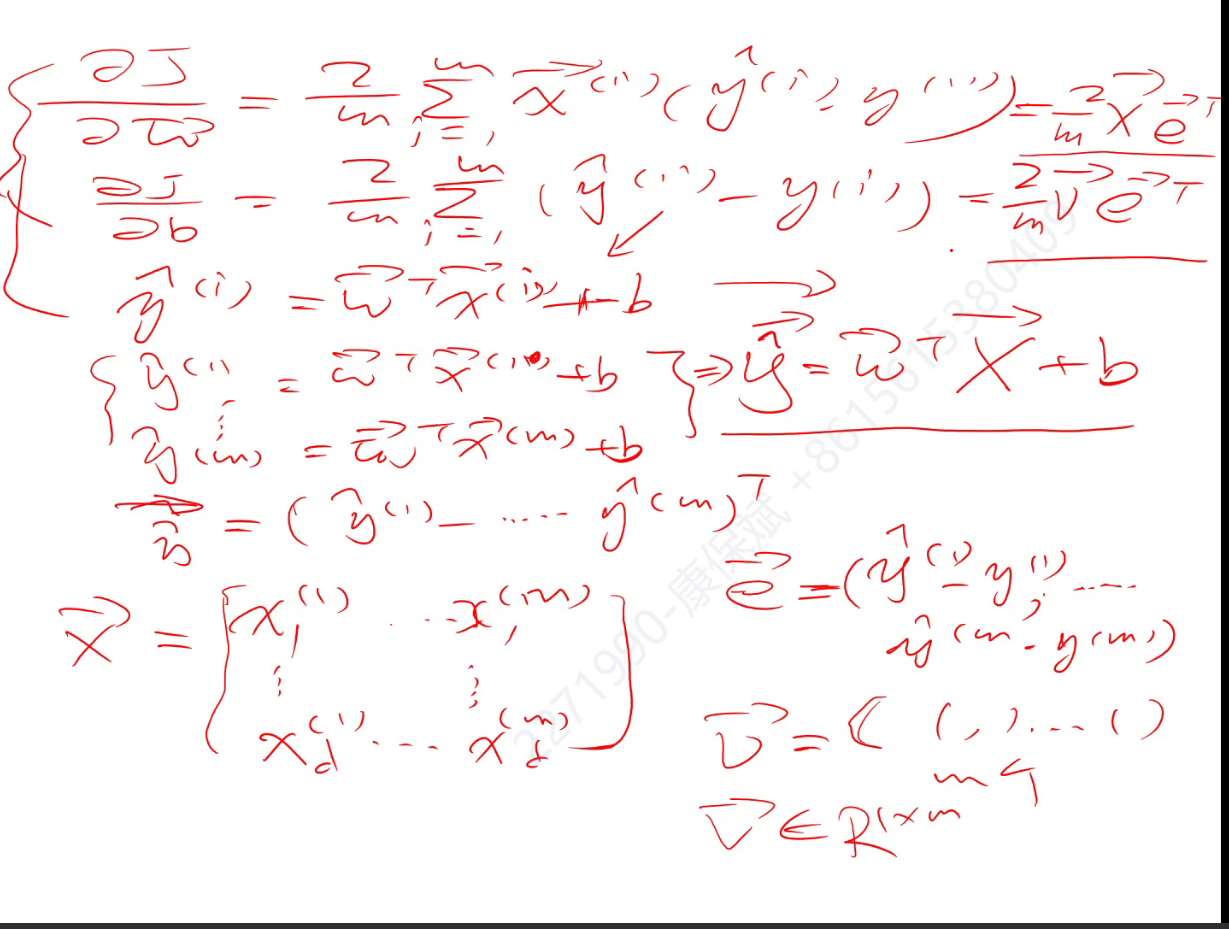 ∂J/∂w⃗ = 2/m Σ_{i=1}^{m} x⃗^(i) (ŷ^(i) - y^(i)) = 2/m X⃗ e⃗^T
∂J/∂b = 2/m Σ_{i=1}^{m} (ŷ^(i) - y^(i)) = 2/m v⃗ e⃗^T
ŷ^(i) = w⃗^T x⃗^(i) + b
ŷ^(1) = w⃗^T x⃗^(1) + b
⋮
ŷ^(m) = w⃗^T x⃗^(m) + b
⇒ ŷ⃗ = w⃗^T X⃗ + b
ŷ⃗ = (ŷ^(1) ..... ŷ^(m))^T
X⃗ = [x_1^(1) ... x_1^(m)
⋮ ⋮
x_d^(1) ... x_d^(m)]
e⃗ = (ŷ^(1) - y^(1), ....
ŷ^(m) - y^(m))
v⃗ = (1, 1, ... 1)
m个
v⃗ ∈ R^{1×m}
2271990-康保斌 +8615615380409